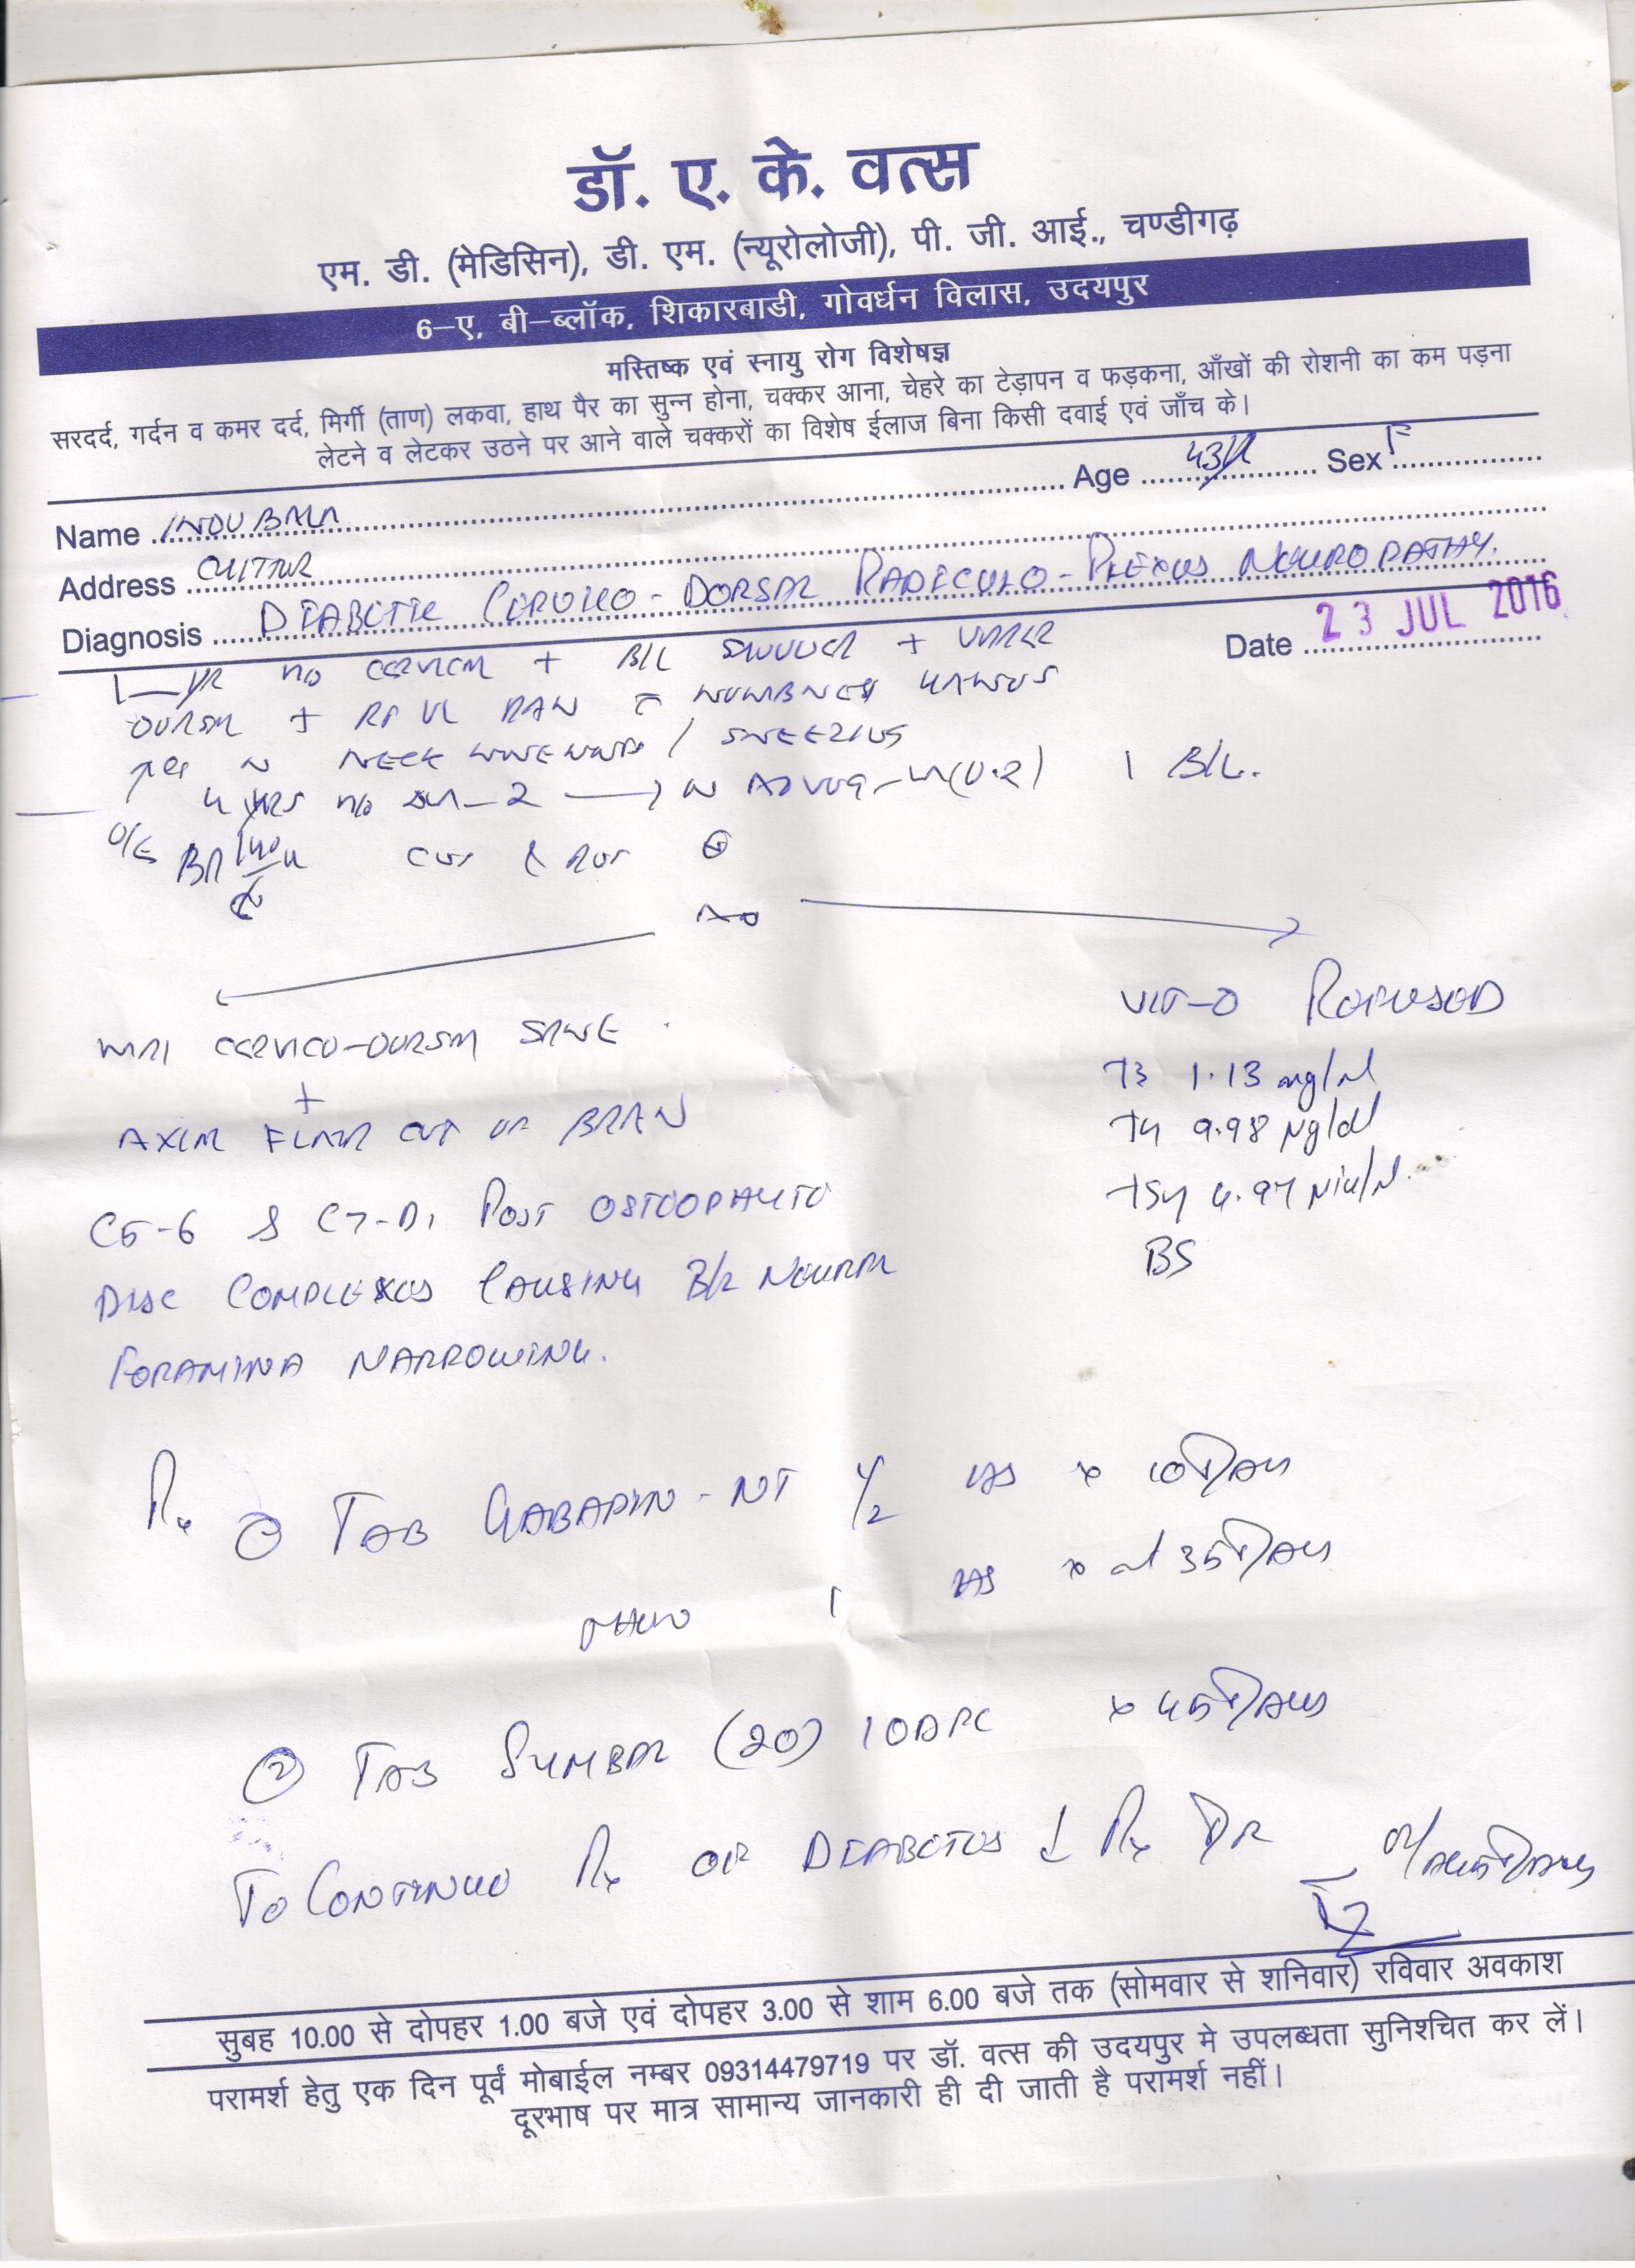 डॉ. ए. के. वत्स
एम. डी. (मेडिसिन), डी. एम. (न्यूरोलोजी), पी. जी. आई., चण्डीगढ़
6–ए, बी–ब्लॉक, शिकारबाडी, गोवर्धन विलास, उदयपुर
मस्तिष्क एवं स्नायु रोग विशेषज्ञ
सरदर्द, गर्दन व कमर दर्द, मिर्गी (ताण) लकवा, हाथ पैर का सुन्न होना, चक्कर आना, चेहरे का टेड़ापन व फड़कना, आँखों की रोशनी का कम पड़ना
लेटने व लेटकर उठने पर आने वाले चक्करों का विशेष ईलाज बिना किसी दवाई एवं जाँच के।
Name INDUBALA Age 43 Sex F
Address CHITTUR
Diagnosis DIABETIC CERVICO-DORSAL RADICULO-PLEXUS NEUROPATHY.
Date 23 JUL 2016
CERVICAL + B/L + UPPER
DORSAL + RT UL PAIN NUMBNESS
NECK MOVEMENTS / SNEEZING
4 YRS DM-2 1 B/L.
O/E BP 140
VIT-D REFUSED
MRI CERVICO-DORSAL SPINE
+
T3 1.13 ng/ml
AXIAL FLAIR CUT OF BRAIN
T4 9.98 µg/dl
C5-6 & C7-D1 POST OSTEOPHYTO
TSH 4.97 µiu/ml
DISC COMPLEXES CAUSING B/L NEURAL
BS
FORAMINA NARROWING.
Rx ① TAB GABAPIN-NT 1/2 HS x 10 DAYS
THEN 1 HS x 35 DAYS
② TAB SYMBAL (20) 1 OD x 45 DAYS
TO CONTINUE Rx OF DIABETES Rx DR
सुबह 10.00 से दोपहर 1.00 बजे एवं दोपहर 3.00 से शाम 6.00 बजे तक (सोमवार से शनिवार) रविवार अवकाश
परामर्श हेतु एक दिन पूर्व मोबाईल नम्बर 09314479719 पर डॉ. वत्स की उदयपुर मे उपलब्धता सुनिश्चित कर लें।
दूरभाष पर मात्र सामान्य जानकारी ही दी जाती है परामर्श नहीं।